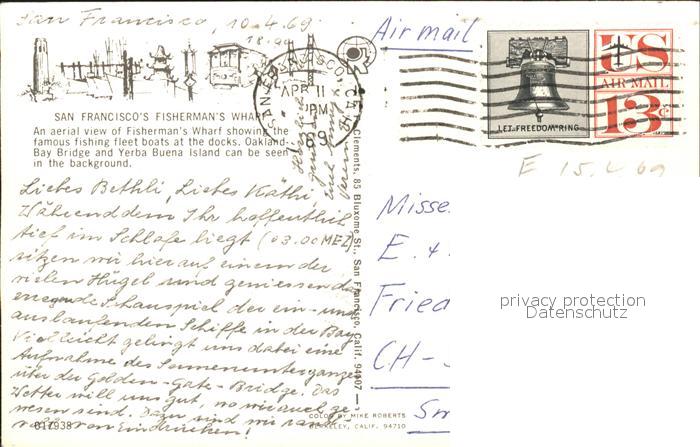 San Francisco, 10.4.69
18.00
Airmail
SAN FRANCISCO CALIF
APR 11
PM
69
LET FREEDOM RING
US
AIR MAIL
13c
SAN FRANCISCO'S FISHERMAN'S WHARF
An aerial view of Fisherman's Wharf showing the
famous fishing fleet boats at the docks. Oakland
Bay Bridge and Yerba Buena Island can be seen
in the background.
E 15.4.69
Liebes Bethli, Liebes Käthi,
Währenddem Ihr hoffentlich
tief im Schlafe liegt (03.00 MEZ)
sitzen wir hier auf einem der
vielen Hügel und geniessen das
Schauspiel der ein- und
auslaufenden Schiffe in der Bay.
Vielleicht gelingt uns dabei eine
Aufnahme des Sonnenunterganges
über der Golden-Gate-Bridge. Das
Wetter will uns gut, wo wir auch ge-
wesen sind. Dazu sind wir rand-
voll von Eindrücken!
Herzlich
Clements, 85 Bluxome St., San Francisco, Calif. 94107
Misse
E. +
Fried
CH-
Sm
privacy protection
Datenschutz
617938
COLOR BY MIKE ROBERTS
BERKELEY, CALIF. 94710